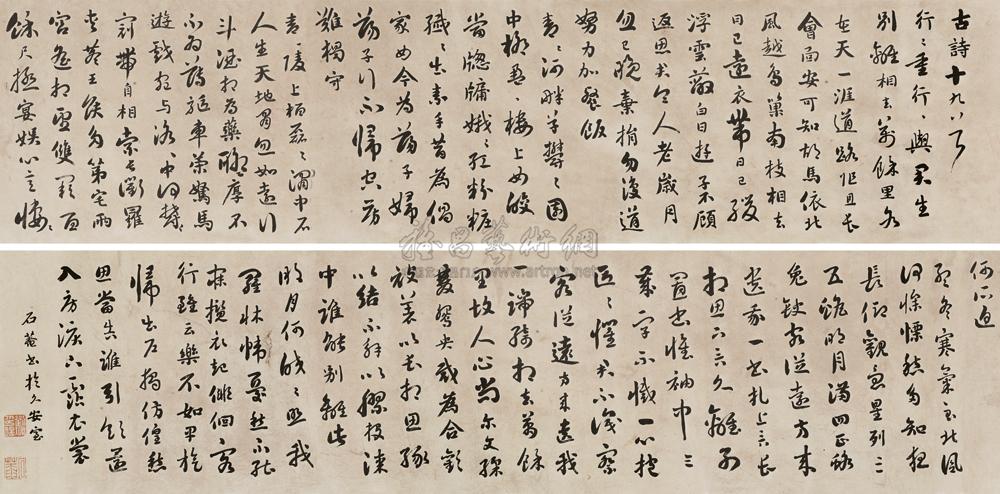 古詩十九首
行々重行行與君生
別離相去萬餘里各
在天一涯道路阻且長
會面安可知胡馬依北
風越鳥巢南枝相去
日已遠衣帶日已緩
浮雲蔽白日遊子不顧
返思君令人老歲月
忽已晚棄捐勿復道
努力加餐飯
青々河畔草鬱々園
中柳盈々樓上女皎
當牕牖娥々紅粉粧
纖々出素手昔為倡
家女今為蕩子婦
蕩子行不歸空房
難獨守
青々陵上柏磊々澗中石
人生天地間忽如遠行
斗酒相為樂聊厚不
不為薄驅車策駑馬
遊戲宛與洛々中何鬱々
冠帶自相索長衢羅
夾巷王侯多第宅兩
宮遙相望雙闕百
餘尺極宴娛心意
何所迫
孟冬寒氣至北風
何慘慄愁多知夜
長仰觀衆星列三
五明月滿四五蟾
兔缺客從遠方來
遺我一書札上言長
相思下言久離別
置書懷袖中三
歲字不滅一心抱
區々懼君不識察
客從遠方來遺我
一端綺相去萬餘
里故人心尚爾文綵
雙鴛鴦裁為合歡
被著以長相思緣
以結不解以膠投漆
中誰能別離此
明月何皎々照我
羅牀幃憂愁不能
寐攬衣起徘徊客
行雖云樂不如早旋
歸出戶獨彷徨愁
思當告誰引領還
入房淚下霑衣裳
石菴書於久安室